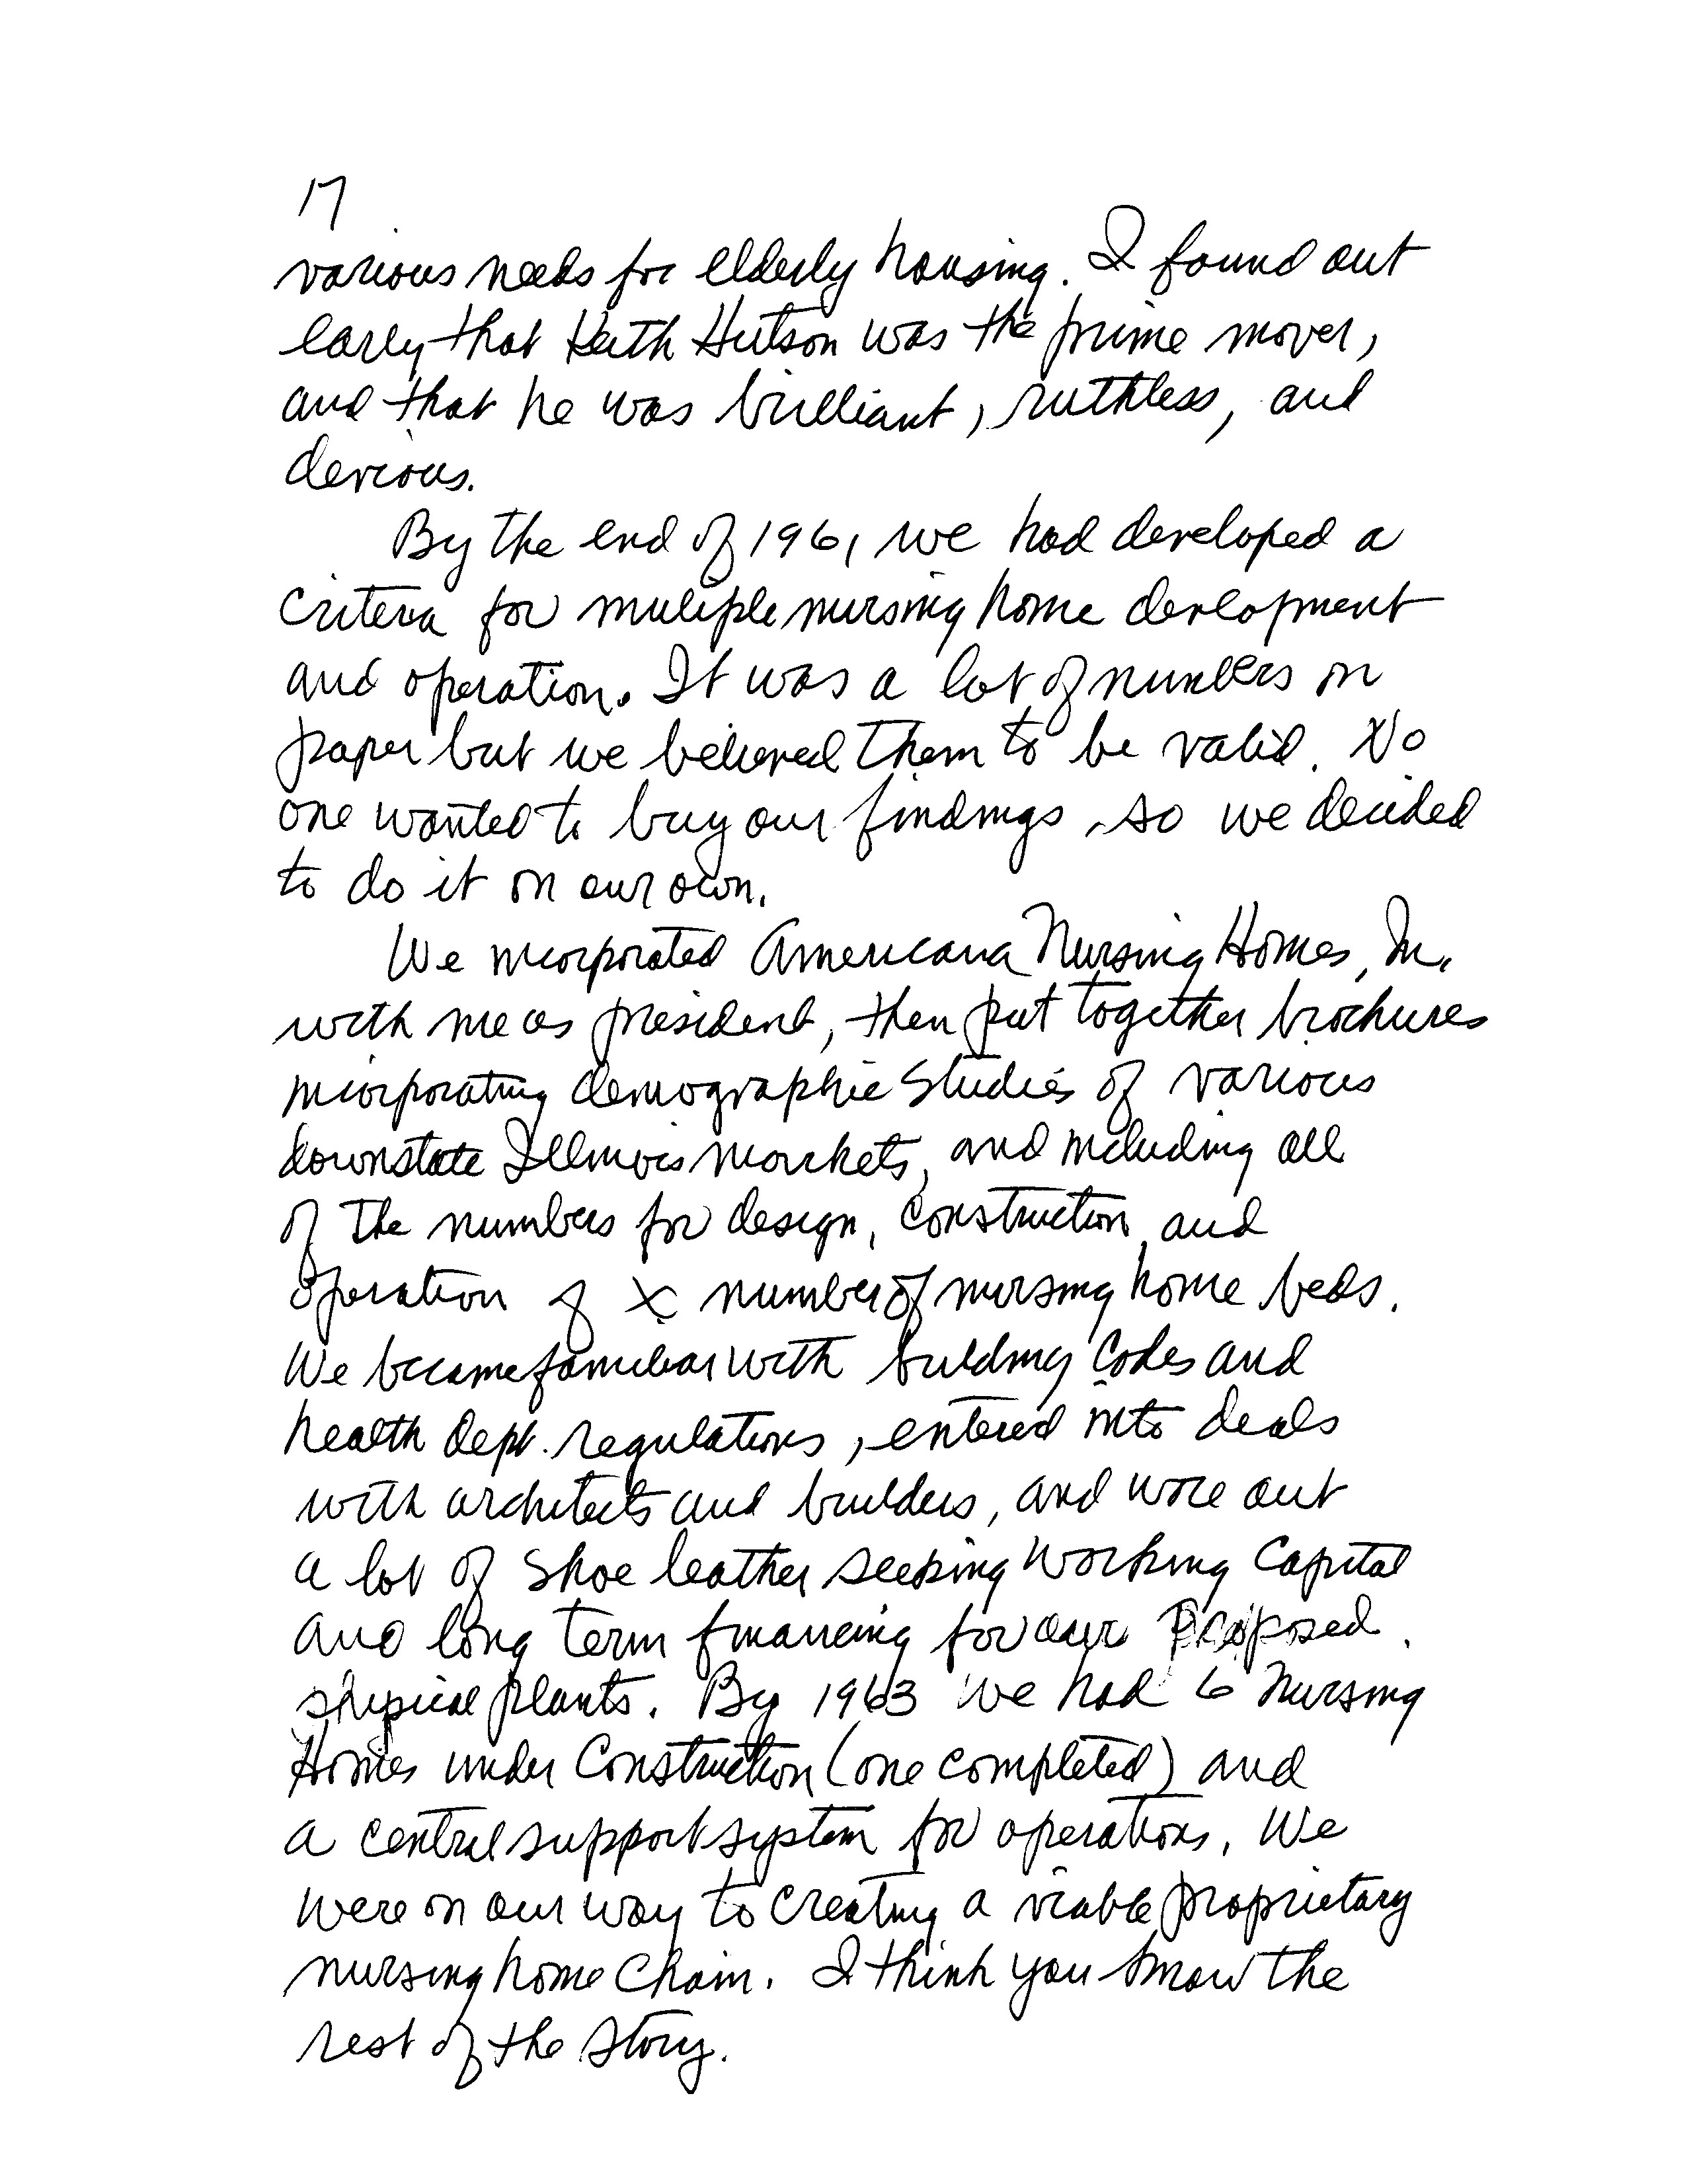 17
various needs for elderly housing. I found out
early that Keith Hutson was the prime mover,
and that he was brilliant, ruthless, and
devious.
By the end of 1961 we had developed a
criteria for multiple nursing home development
and operation. It was a lot of numbers on
paper but we believed them to be valid. No
one wanted to buy our findings, so we decided
to do it on our own.
We incorporated Americana Nursing Homes, In.
with me as president, then put together brochures
incorporating demographic studies of various
downstate Illinois markets, and including all
of the numbers for design, construction, and
operation of X number of nursing home beds.
We became familiar with building codes and
health dept. regulations, entered into deals
with architects and builders, and wore out
a lot of shoe leather seeking working capital
and long term financing for our proposed
physical plants. By 1963 we had 6 nursing
Homes under construction (one completed) and
a central support system for operations. We
were on our way to creating a viable proprietary
nursing home chain. I think you know the
rest of the story.